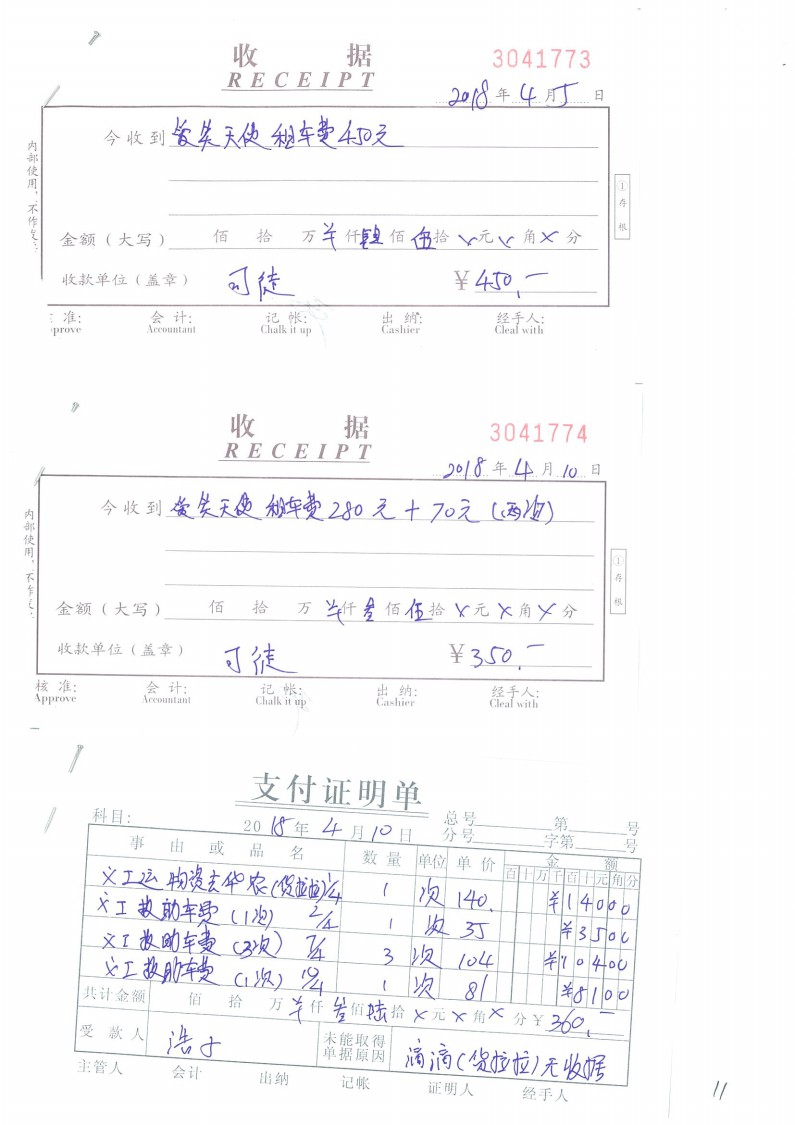 收 据
RECEIPT
3041773
2018 年 4 月 5 日
今收到 爱笑天使 租车费450元
内部使用,不作
① 存根
金额(大写) 佰 拾 万 ¥ 仟 肆 佰 伍 拾 × 元 × 角 × 分
收款单位(盖章) 司徒 ¥ 450.-
准: 会 计: 记 帐: 出 纳: 经手人:
prove Accountant Chalk it up Cashier Cleal with
收 据
RECEIPT
3041774
2018 年 4 月 10 日
今收到 爱笑天使 租车费280元+70元(两次)
内部使用,不作
① 存根
金额(大写) 佰 拾 万 ¥ 仟 叁 佰 伍 拾 × 元 × 角 × 分
收款单位(盖章) 司徒 ¥ 350.-
核 准: 会 计: 记 帐: 出 纳: 经手人:
Approve Accountant Chalk it up Cashier Cleal with
支付证明单
科目: 总号 第 号
2018 年 4 月 10 日 分号 字第 号
事 由 或 品 名 数 量 单位 单 价 金 额
百 十 万 千 百 十 元 角 分
义工运物资去华农(货拉拉)1/4 1 次 140. ¥14000
义工救助车费(1次) 2/4 1 次 35 ¥3500
义工救助车费(3次) 7/4 3 次 104 ¥10400
义工救助车费(1次) 10/4 1 次 81 ¥8100
共计金额 佰 拾 万 ¥ 仟 叁 佰 陆 拾 × 元 × 角 × 分 ¥ 360.-
受 款 人 浩子 未能取得单据原因 滴滴(货拉拉)无收据
主管人 会计 出纳 记帐 证明人 经手人
11